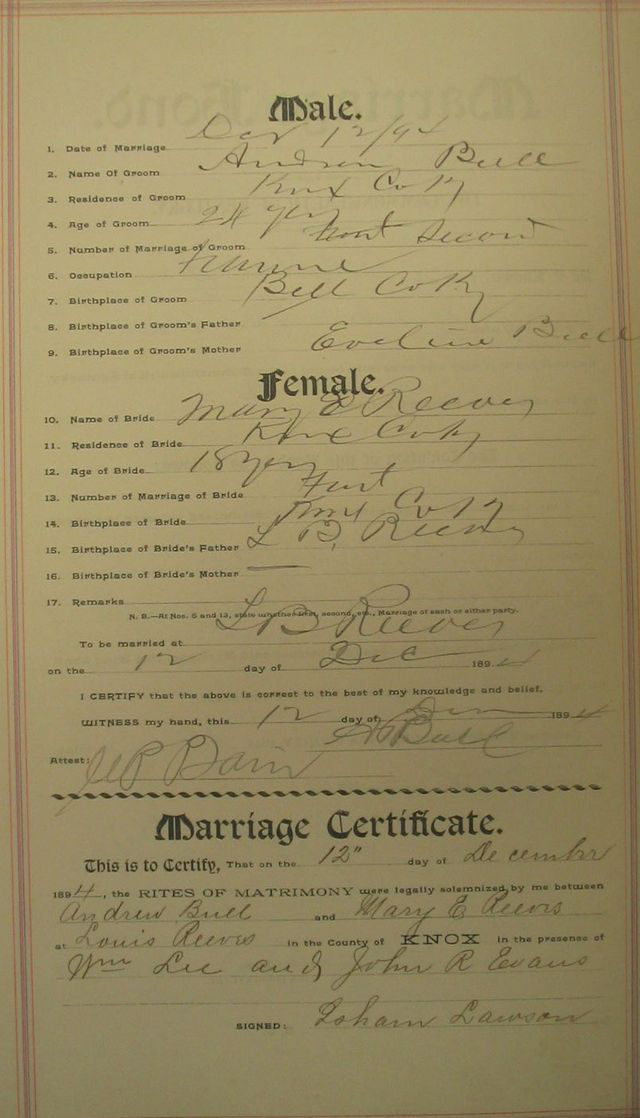 Male.
1. Date of Marriage Dec 12/94
2. Name Of Groom Andrew Bull
3. Residence of Groom Knx Co Ky
4. Age of Groom 24 yrs
5. Number of Marriage of Groom Second
6. Occupation
7. Birthplace of Groom Bell Co Ky
8. Birthplace of Groom's Father
9. Birthplace of Groom's Mother Eveline Bull
Female.
10. Name of Bride Mary E Reeves
11. Residence of Bride Knx Co Ky
12. Age of Bride 18 yrs
13. Number of Marriage of Bride First
14. Birthplace of Bride Knx Co Ky
15. Birthplace of Bride's Father L B. Reeves
16. Birthplace of Bride's Mother —
17. Remarks
N. B.—At Nos. 5 and 13, state whether first, second, etc., Marriage of each or either party.
To be married at L B Reeves
on the 12 day of Dec 1894
I CERTIFY that the above is correct to the best of my knowledge and belief.
WITNESS my hand, this 12 day of 1894
Bull
Attest:
Marriage Certificate.
This is to Certify, That on the 12" day of December
1894, the RITES OF MATRIMONY were legally solemnized by me between
Andrew Bull and Mary E Reeves
at Louis Reeves in the County of KNOX in the presence of
Wm Lee and John R Evans
SIGNED: Isham Lawson